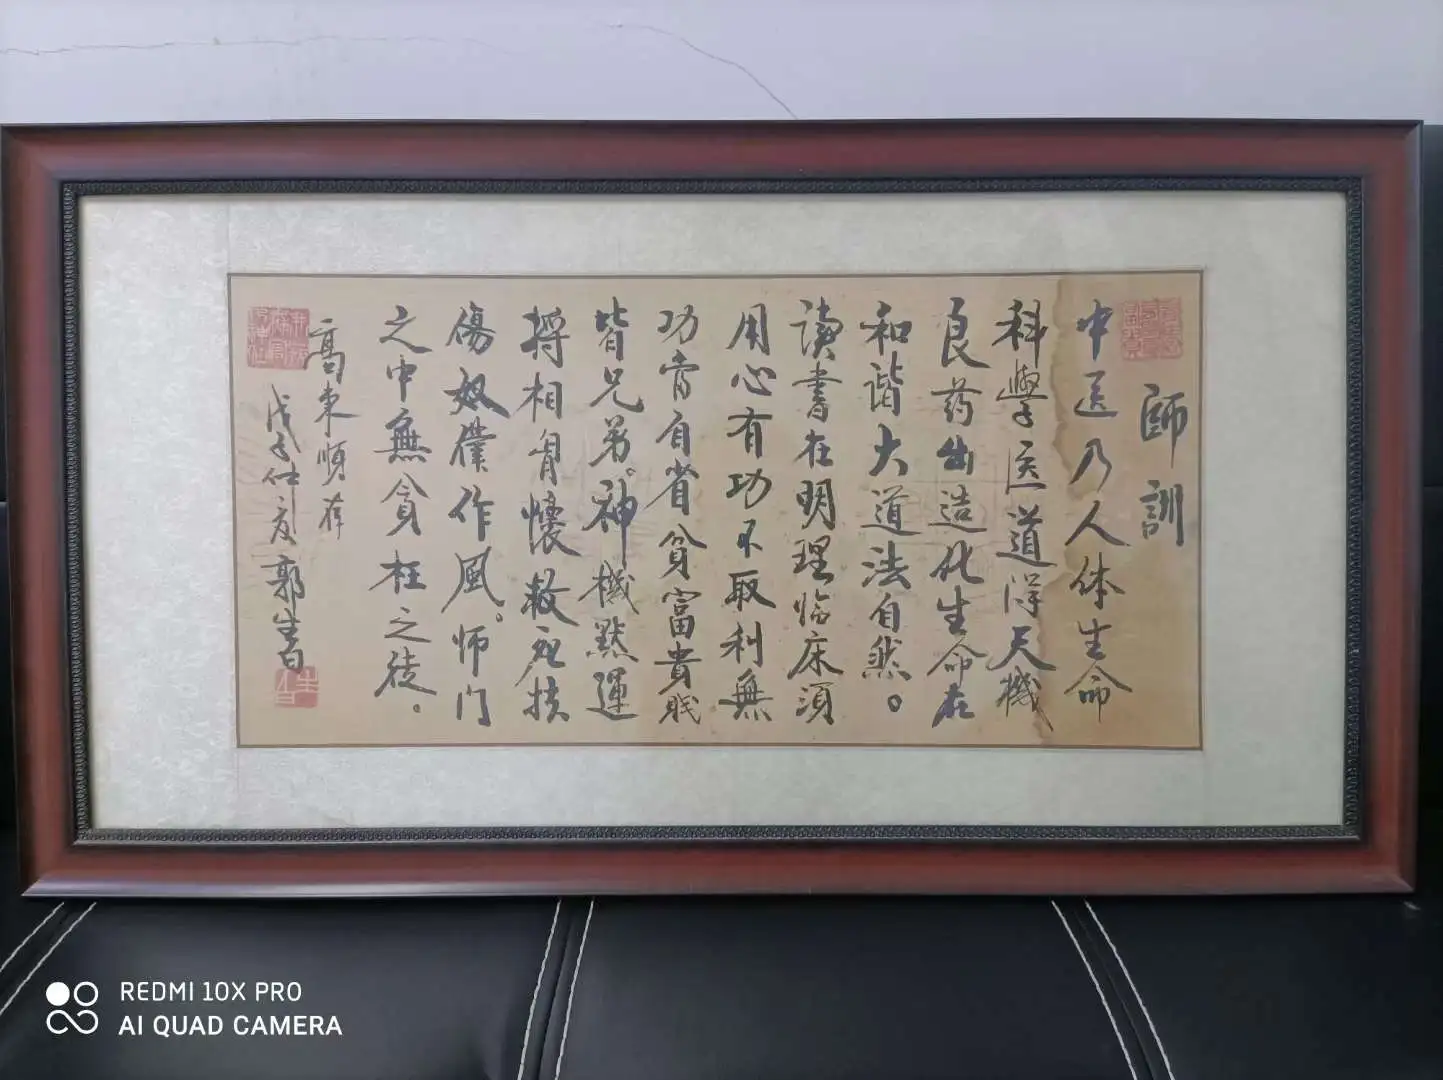 師訓
中医乃人体生命
科學医道得天機
良药出造化生命在
和谐大道法自然。
读書在明理临床須
用心有功不取利無
功常自省貧富貴賎
皆兄弟。神機默運
将相胸懷救死扶
傷奴僕作風。师门
之中無貪枉之徒。
高东順存
戊子仲夏郭生白
REDMI 10X PRO
AI QUAD CAMERA